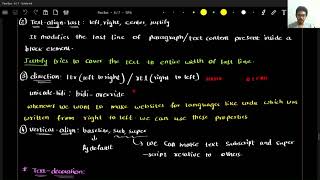 ② Text-align-last: left, right, center, justify
It modifies the last line of Paragraph/text content present inside a block element.
Justify tries to cover the text to entire width of last line.
③ direction: ltr (left to right) / rtl (right to left)
unicode-bidi: bidi-override
whenever we want to make websites for languages like urdu which was written from right to left we can use these properties
④ vertical-align: baseline, sub, super
By default
we can make text subscript and super-script relative to others.
* Text-decoration: